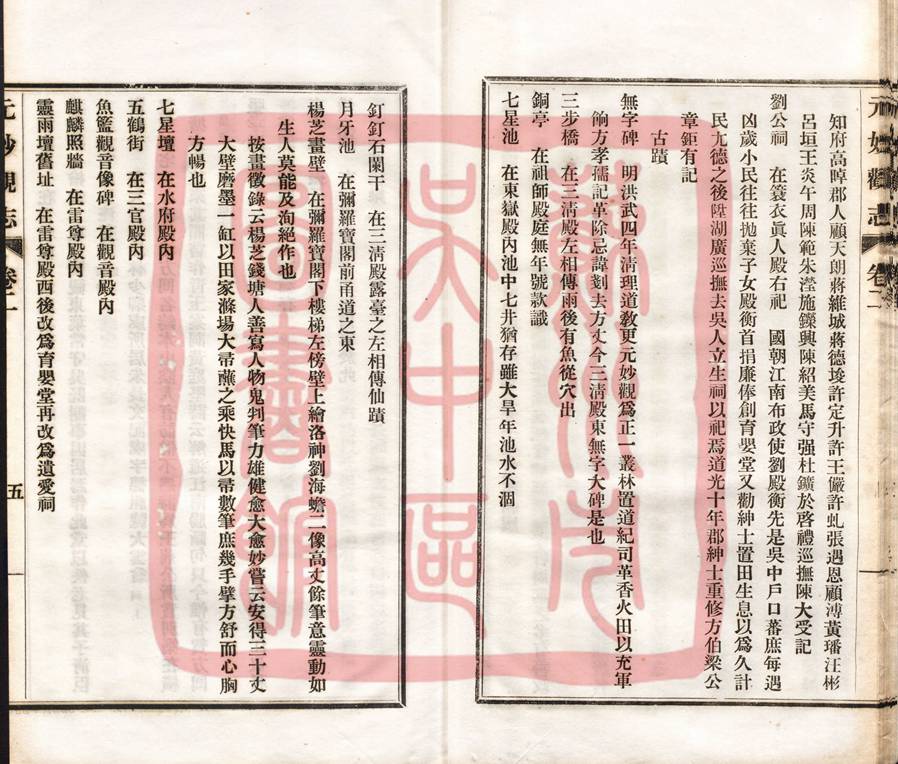 元妙觀志 卷二
知府高晫郡人顧天朗蔣維城蔣德埈許定升許王儼許虬張遇恩顧溥黃璠汪彬
呂垣王炎午周陳範朱瀅施鑅興陳紹美馬守强杜鑛於啓禮巡撫陳大受記
劉公祠 在蓑衣眞人殿右祀 國朝江南布政使劉殿衡先是吳中戶口蕃庶每遇
凶歲小民往往拋棄子女殿衡首捐廉俸創育嬰堂又勸紳士置田生息以爲久計
民亢德之後陞湖廣巡撫去吳人立生祠以祀焉道光十年郡紳士重修方伯梁公
章鉅有記
古蹟
無字碑 明洪武四年淸理道敎更元妙觀爲正一叢林置道紀司革香火田以充軍
餉方孝孺記革除忌諱剗去方丈今三淸殿東無字大碑是也
三步橋 在三淸殿左相傳雨後有魚從穴出
銅亭 在祖師殿庭無年號款識
七星池 在東嶽殿內池中七井猶存雖大旱年池水不涸
釘釘石闌干 在三淸殿露臺之左相傳仙蹟
月牙池 在彌羅寶閣前甬道之東
楊芝畫壁 在彌羅寶閣下樓梯左傍壁上繪洛神劉海蟾二像高丈餘筆意靈動如
生人莫能及洵絕作也
按畫徵錄云楊芝錢塘人善寫人物鬼判筆力雄健愈大愈妙嘗云安得三十丈
大壁磨墨一缸以田家滌場大帚蘸之乘快馬以帚數筆庶幾手擘方舒而心胸
方暢也
七星壇 在水府殿內
五鶴街 在三官殿內
魚籃觀音像碑 在觀音殿內
麒麟照牆 在雷尊殿內
靈雨壇舊址 在雷尊殿西後改爲育嬰堂再改爲遺愛祠
元妙觀志 卷二 五
蘇州市
吳中區
圖書館